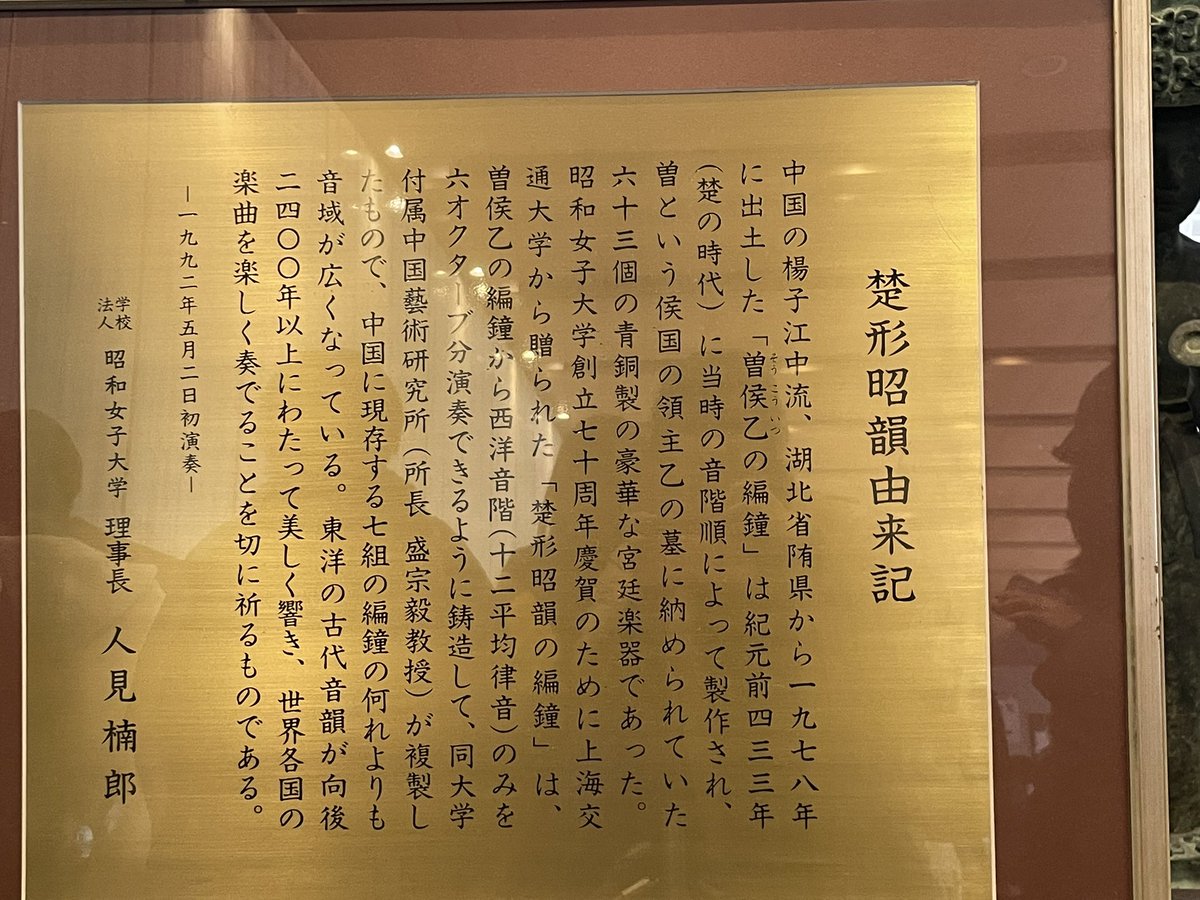 楚形昭韻由来記
中国の楊子江中流、湖北省陏県から一九七八年
に出土した「曽侯乙の編鐘」は紀元前四三三年
そうこういつ
(楚の時代)に当時の音階順によって製作され、
曽という侯国の領主乙の墓に納められていた
六十三個の青銅製の豪華な宮廷楽器であった。
昭和女子大学創立七十周年慶賀のために上海交
通大学から贈られた「楚形昭韻の編鐘」は、
曽侯乙の編鐘から西洋音階(十二平均律音)のみを
六オクターブ分演奏できるように鋳造して、同大学
付属中国藝術研究所(所長 盛宗毅教授)が複製し
たもので、中国に現存する七組の編鐘の何れよりも
音域が広くなっている。東洋の古代音韻が向後
二四〇〇年以上にわたって美しく響き、世界各国の
楽曲を楽しく奏でることを切に祈るものである。
―一九九二年五月二日初演奏―
学校法人 昭和女子大学 理事長 人見楠郎